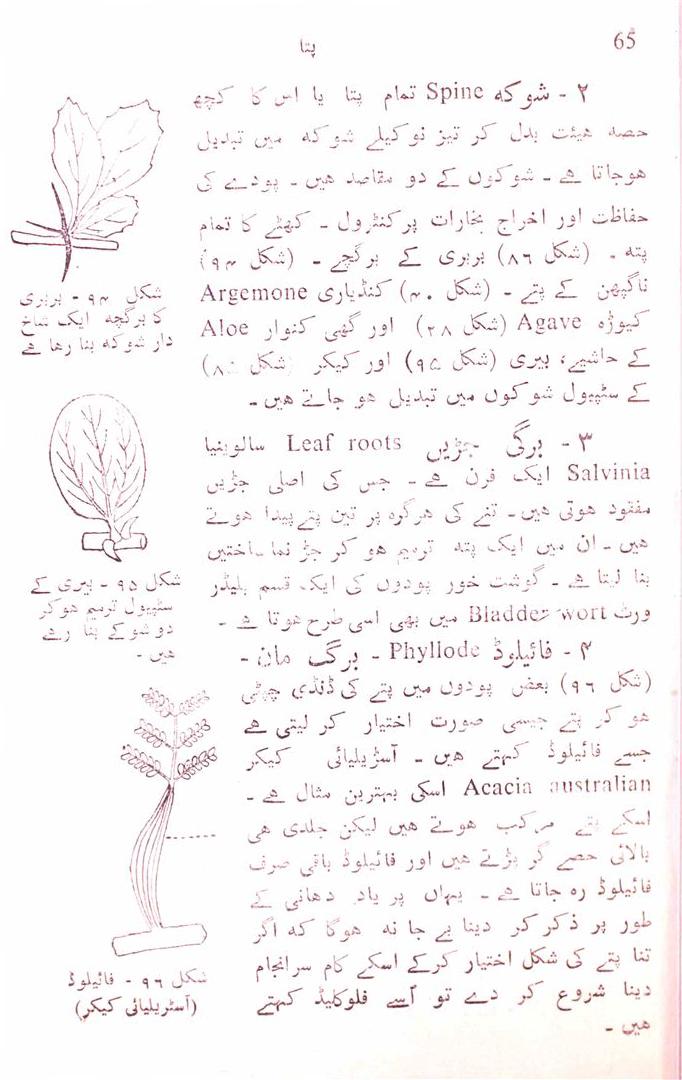 پتا
65
۲ - شوکہ Spine تمام پتا یا اس کا کچھ
حصہ ہیئت بدل کر تیز نوکیلے شوکہ میں تبدیل
ہوجاتا ہے - شوکوں کے دو مقاصد ہیں - پودے کی
حفاظت اور اخراج بخارات پر کنٹرول - کھٹے کا تمام
پتہ - (شکل ۸۶) بربری کے برگچے - (شکل ۹۴)
ناگپھن کے پتے - (شکل ۴۰) کنڈیاری Argemone
کیوڑہ Agave (شکل ۲۸) اور گھی کنوار Aloe
کے حاشیے، بیری (شکل ۹۵) اور کیکر (شکل ۸۵)
کے سٹیپول شوکوں میں تبدیل ہو جاتے ہیں -
شکل ۹۴ - بربری
کا برگچہ ایک شاخ
دار شوکہ بنا رہا ہے
۳ - برگی جڑیں Leaf roots سالوینیا
Salvinia ایک فرن ہے - جس کی اصلی جڑیں
مفقود ہوتی ہیں - تنے کی ہر گرہ پر تین پتے پیدا ہوتے
ہیں - ان میں ایک پتہ ترمیم ہو کر جڑ نما ساختیں
بنا لیتا ہے - گوشت خور پودوں کی ایک قسم بلیڈر
ورٹ Bladder wort میں بھی اسی طرح ہوتا ہے -
شکل ۹۵ - بیری کے
سٹیپول ترمیم ہوکر
دو شوکے بنا رہے
ہیں -
۴ - فائیلوڈ Phyllode - برگ مان -
(شکل ۹۶) بعض پودوں میں پتے کی ڈنڈی چپٹی
ہو کر پتے جیسی صورت اختیار کر لیتی ہے
جسے فائیلوڈ کہتے ہیں - آسٹریلیائی کیکر
Acacia australian اسکی بہترین مثال ہے -
اسکے پتے مرکب ہوتے ہیں لیکن جلدی ہی
بالائی حصے گر پڑتے ہیں اور فائیلوڈ باقی صرف
فائیلوڈ رہ جاتا ہے - یہاں پر یاد دھانی کے
طور پر ذکر کر دینا بے جا نہ ہوگا کہ اگر
تنا پتے کی شکل اختیار کرکے اسکے کام سرانجام
دینا شروع کر دے تو اُسے فلوکلیڈ کہتے
ہیں -
شکل ۹۶ - فائیلوڈ
(آسٹریلیائی کیکر)